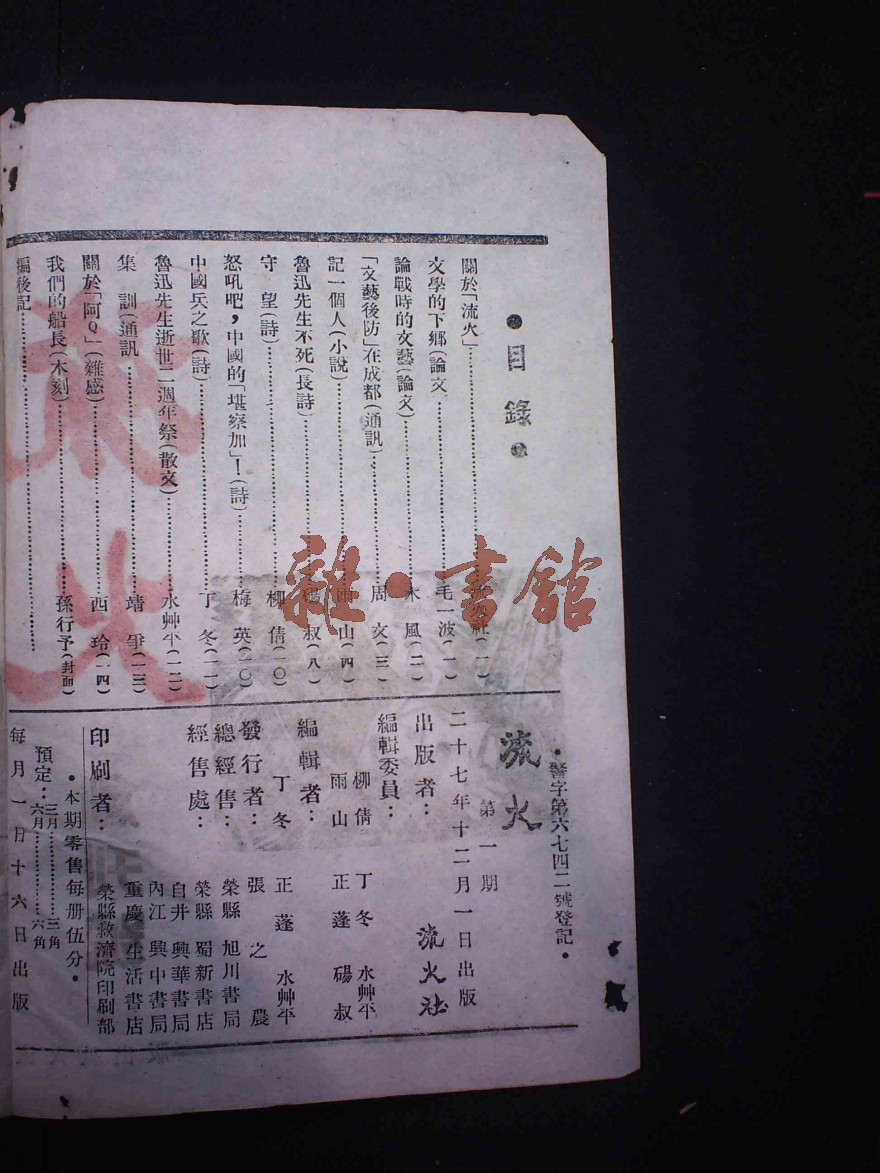 ●目錄●
關於「流火」……………流火社(一)
文學的下鄉(論文……………毛一波(一)
論戰時的文藝(論文)……………木風(二)
「文藝後防」在成都(通訊)……………周文(三)
記一個人(小說)……………雨山(四)
魯迅先生不死(長詩)……………碭叔(八)
守望(詩)……………柳倩(一〇)
怒吼吧,中國的「堪察加」!(詩)……………梅英(一〇)
中國兵之歌(詩)……………丁冬(一一)
魯迅先生逝世二週年祭(散文)……………水艸平(一二)
集訓(通訊……………靖爭(一三)
關於「阿Q」(雜感)……………西玲(一四)
我們的船長(木刻)……………孫行予(封面)
編後記……………
●警字第六七四二號登記●
流火
第一期
二十七年十二月一日出版
出版者:流火社
編輯委員:柳倩 丁冬 水艸平
雨山 正蓬 碭叔
編輯者:丁冬 正蓬 水艸平
發行者:張之農
總經售:榮縣旭川書局
經售處:榮縣蜀新書店
自井興華書局
內江興中書局
重慶生活書店
印刷者:榮縣救濟院印刷部
●本期零售每冊伍分●
預定:三月……三角
六月……六角
每月一日十六日出版
流火
雜·書館